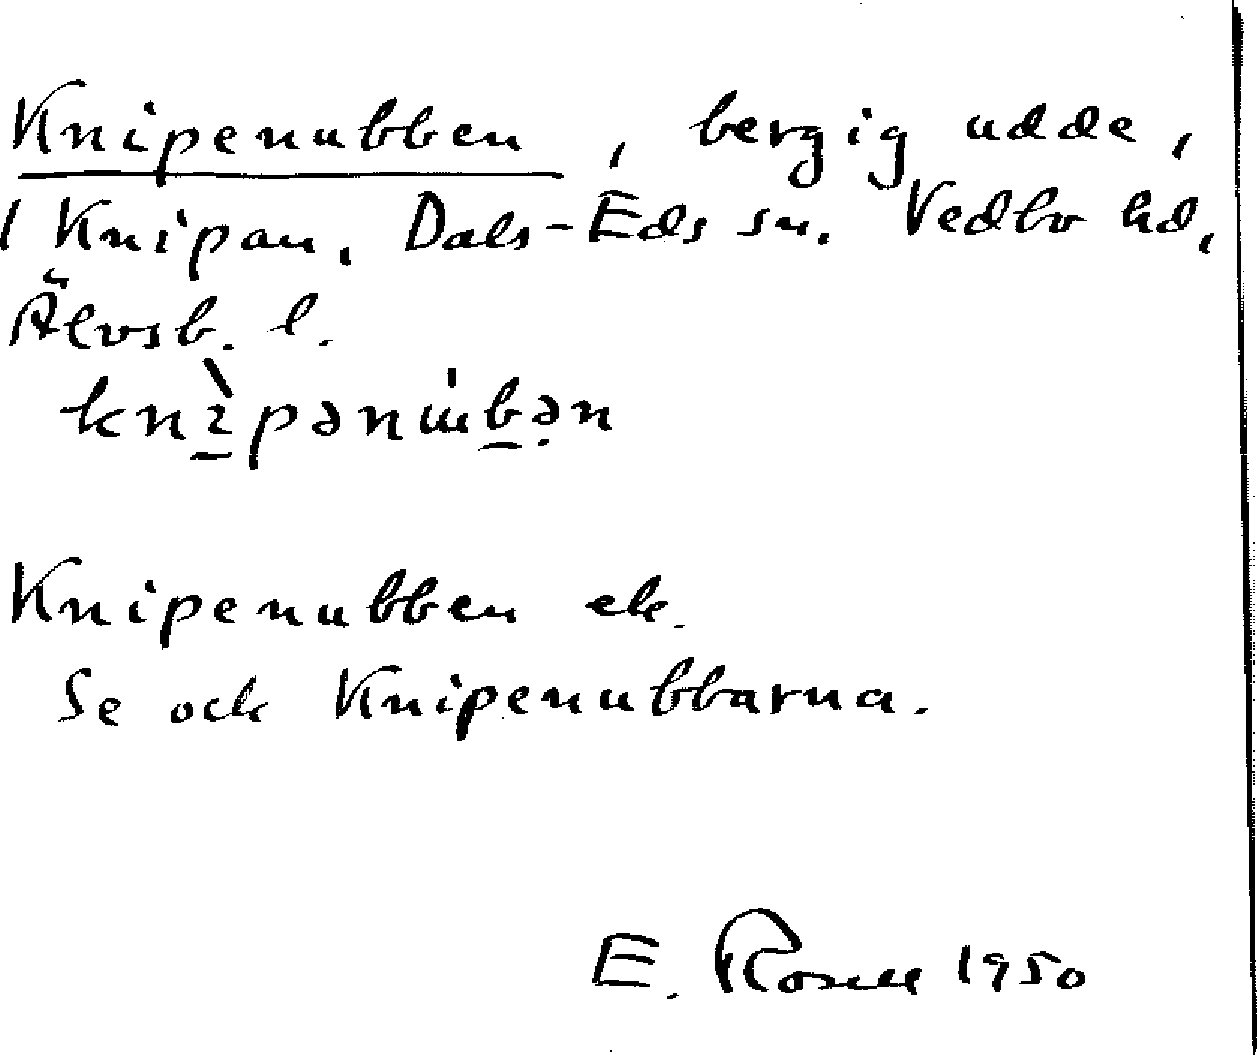 Knipenubben, bergig udde,
/ Knipan, Dals-Eds sn. Vedbo hd,
Älvsb. l.
Knipenubben ek.
Se ock Knipenubbarna.
E. Rosell 1950